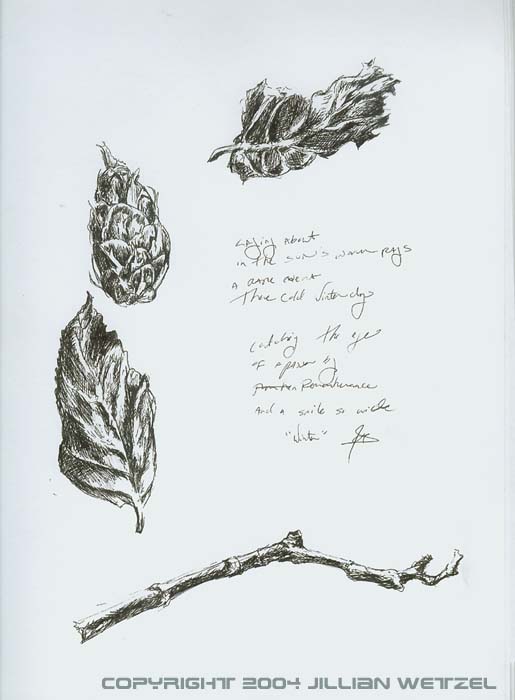 Laying about
in the sun's warm rays
A rare event
These cold winter days
Catching the eye
of a
Remembrance
And a smile so wide
"Winter"
COPYRIGHT 2004 JILLIAN WETZEL